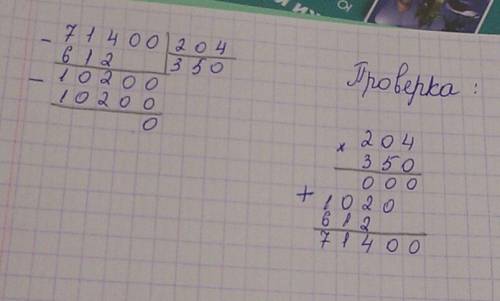 - 71400 | 204
612 | 350
- 10200
10200
0
Проверка:
× 204
350
000
+ 1020
612
71400